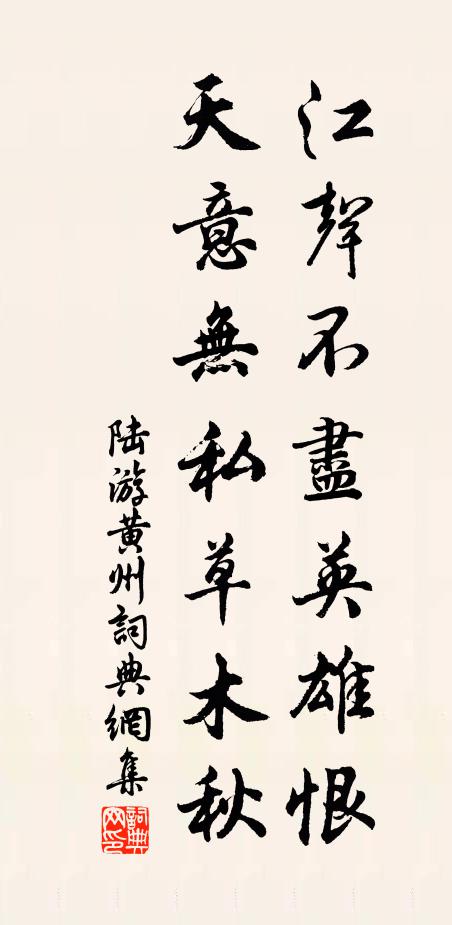 江聲不盡英雄恨
天意無私草木秋
陸游黄州詞典網集
詞典網印